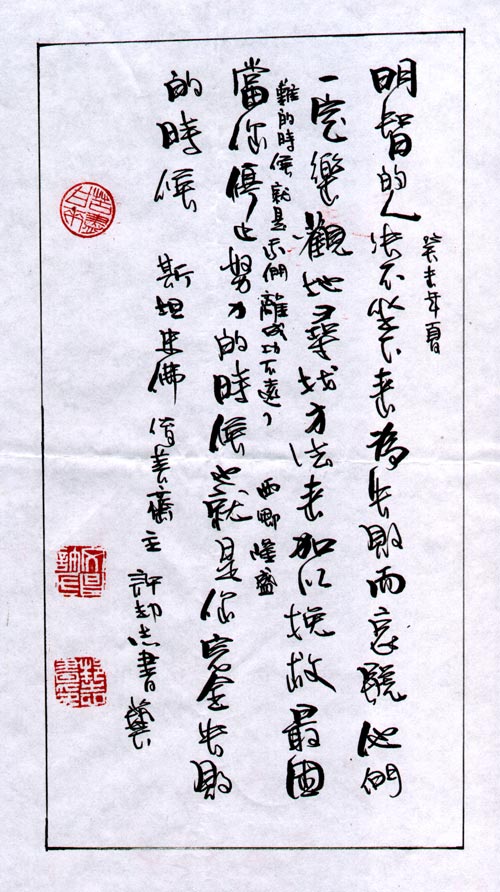 癸未年夏
明智的人決不坐下來為失敗而哀號他們
一定樂觀地尋找方法來加以挽救最困
難的時候就是我們離成功不遠了 西鄉隆盛
當你停止努力的時候也就是你完全失敗
的時候
斯坦 佛 善齋主 許 志書